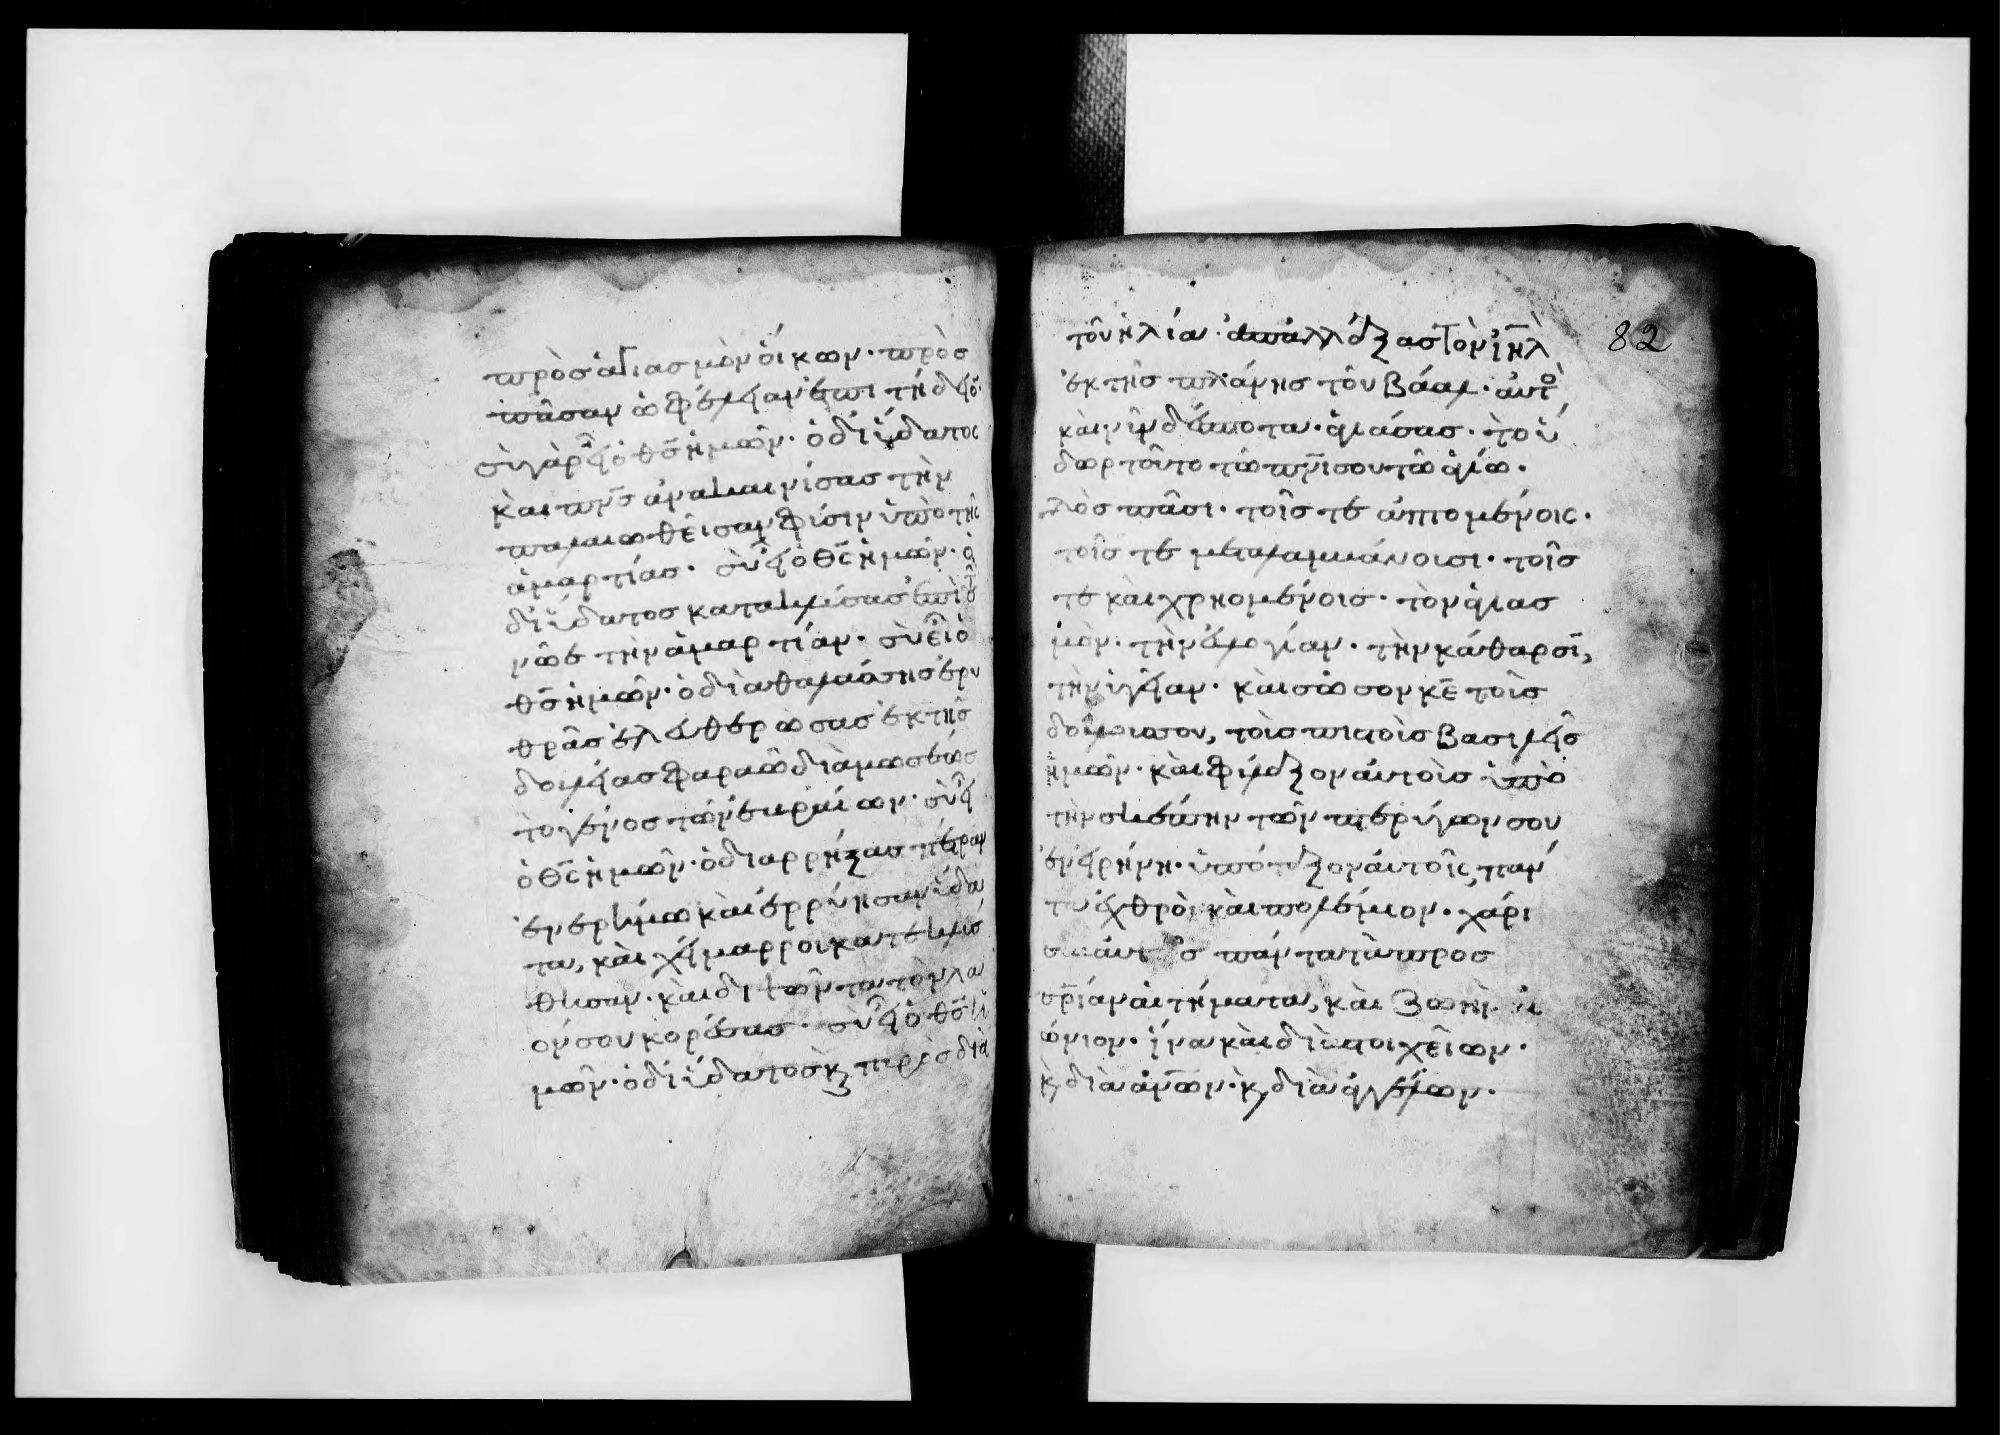 πρὸς ἁγιασμὸν οἴκων· πρὸς
πᾶσαν ὠφέλειαν ἐπιτήδειον·
σὺ γὰρ εἶ ὁ θ̅ς̅ ἡμῶν· ὁ δι ὕδατος
καὶ πν̅ς̅ ἀνακαινίσας τὴν
παλαιωθεῖσαν φύσιν ὑπὸ τῆς
ἁμαρτίας· σὺ εἶ ὁ θ̅ς̅ ἡμῶν· ὁ
δι ὕδατος κατακλύσας ἐπὶ τοῦ
νῶε τὴν ἁμαρτίαν· σὺ εἶ ὁ
θ̅ς̅ ἡμῶν· ὁ διὰ θαλάσσης ἐρυ
θρᾶς ἐλευθερώσας ἐκ τῆς
δουλείας φαραῶ διὰ μωσέως
τὸ γένος τῶν ἑβραίων· σὺ εἶ
ὁ θ̅ς̅ ἡμῶν· ὁ διαρρήξας πέτραν
ἐν ἐρήμω καὶ ἐρρύησαν ὕδα
τα, καὶ χείμαρροι κατεκλύσ
θησαν· καὶ διψῶντα τὸν λα
όν σου κορέσας· σὺ εἶ ὁ θ̅ς̅ ἡ
μῶν· ὁ δι ὕδατος κ πυρὸς διὰ
82
τοῦ ἡλία· ἀπαλλάξας τὸν ι̅η̅λ̅
ἐκ τῆς πλάνης τοῦ βάαλ· αὐτὸ
καὶ νῦν δέσποτα· ἁγιάσας· τὸ ὕ
δωρ τοῦτο τῶ πν̅ι̅ σου τῶ ἁγίω·
δὸς πᾶσι· τοῖς τε ἁπτομένοις·
τοῖς τε μεταλαμβάνουσι· τοῖς
τε καὶ χρηομένοις· τὸν ἁγιασ
μὸν· τὴν εὐλογίαν· τὴν κάθαρσι̅,
τὴν ὑγείαν· καὶ σῶσον κ̅ε̅ τοὺς
δούλους σου, τοὺς πιστοὺς βασιλεῖς
ἡμῶν· καὶ φύλαξον αὐτοὺς ὑπὸ
τὴν σκέπην τῶν πτερύγων σου
ἐν εἰρήνη· ὑπόταξον αὐτοῖς, πάν
τα ἐχθρὸν καὶ πολέμιον· χάρι
σαι αὐτοῖς πάντα τὰ πρὸς
σ̅ρ̅ίαν αἰτήματα, καὶ ζωὴν αἰ
ώνιον· ἵνα καὶ διὰ στοιχείων·
κ διὰ ἀν̅ων· κ διὰ ἀγγέλων·